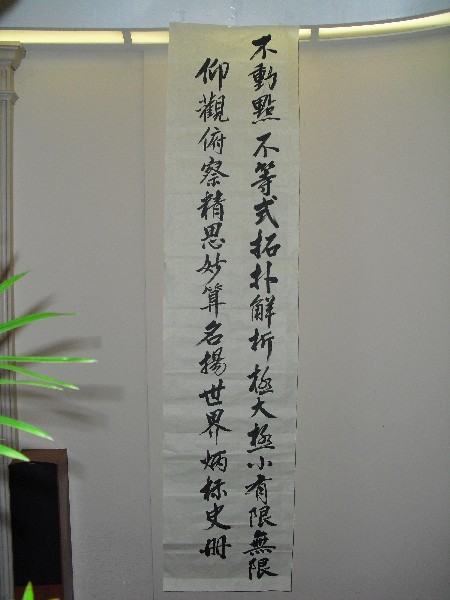 不動點不等式拓朴解析極大極小有限無限
仰觀俯察精思妙算名揚世界炳标史册